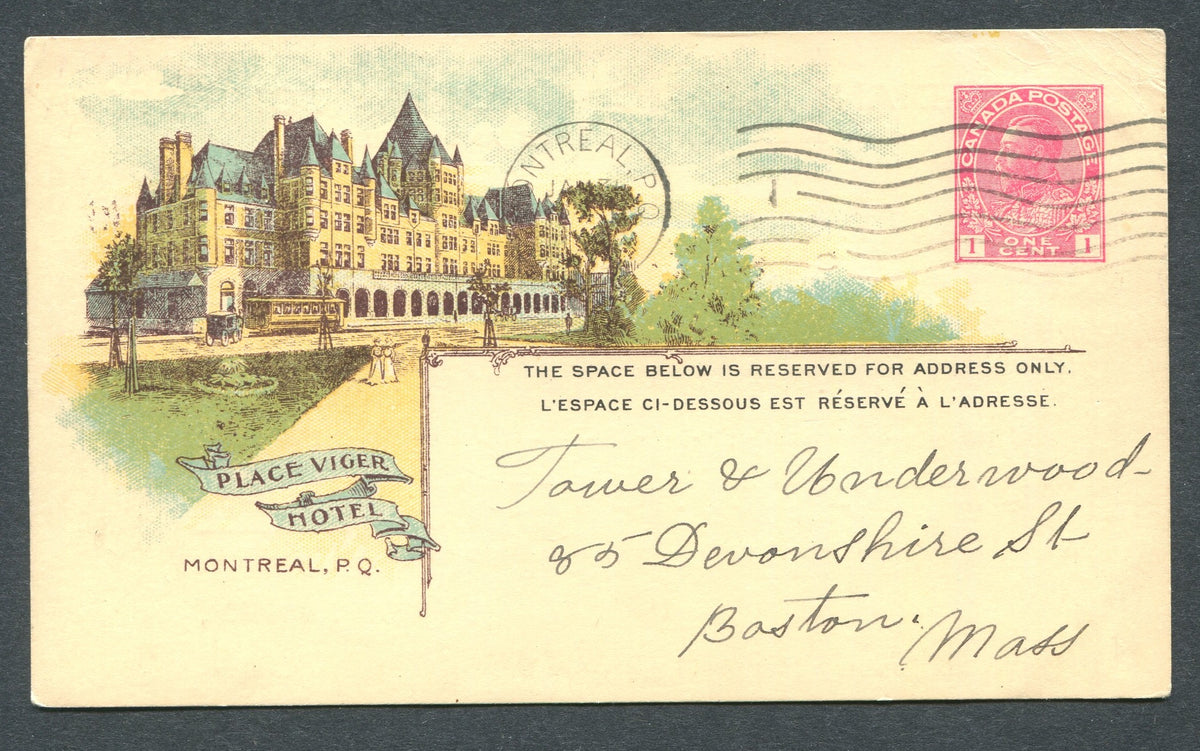 CANADA POSTAGE
1 ONE CENT 1
MONTREAL, P.Q.
THE SPACE BELOW IS RESERVED FOR ADDRESS ONLY.
L'ESPACE CI-DESSOUS EST RÉSERVÉ À L'ADRESSE.
PLACE VIGER
HOTEL
MONTREAL, P.Q.
Tower & Underwood
85 Devonshire St
Boston, Mass